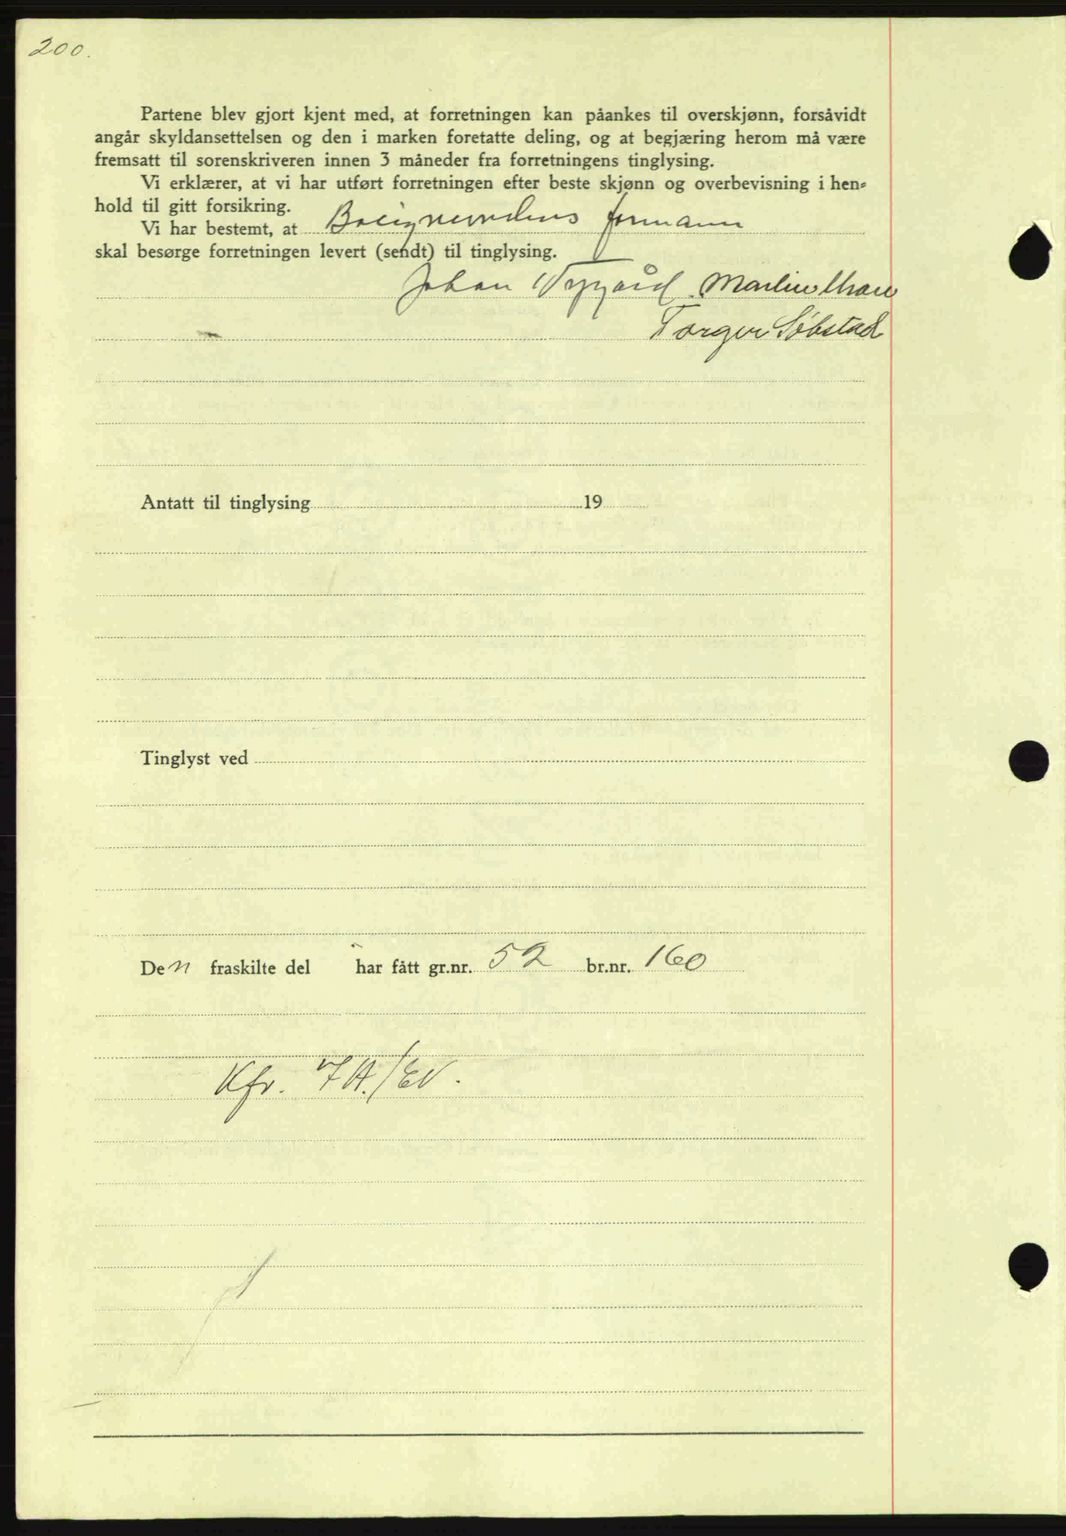 200.
Partene blev gjort kjent med, at forretningen kan påankes til overskjønn, forsåvidt
angår skyldansettelsen og den i marken foretatte deling, og at begjæring herom må være
fremsatt til sorenskriveren innen 3 måneder fra forretningens tinglysing.
Vi erklærer, at vi har utført forretningen efter beste skjønn og overbevisning i hen=
hold til gitt forsikring.
Vi har bestemt, at Bolignevndens formann
skal besørge forretningen levert (sendt) til tinglysing.
Johan Nygård. Martin
Torger Søbstad
Antatt til tinglysing 19
Tinglyst ved
Den fraskilte del har fått gr.nr. 52 br.nr. 160
Kfr. 7A./EV.